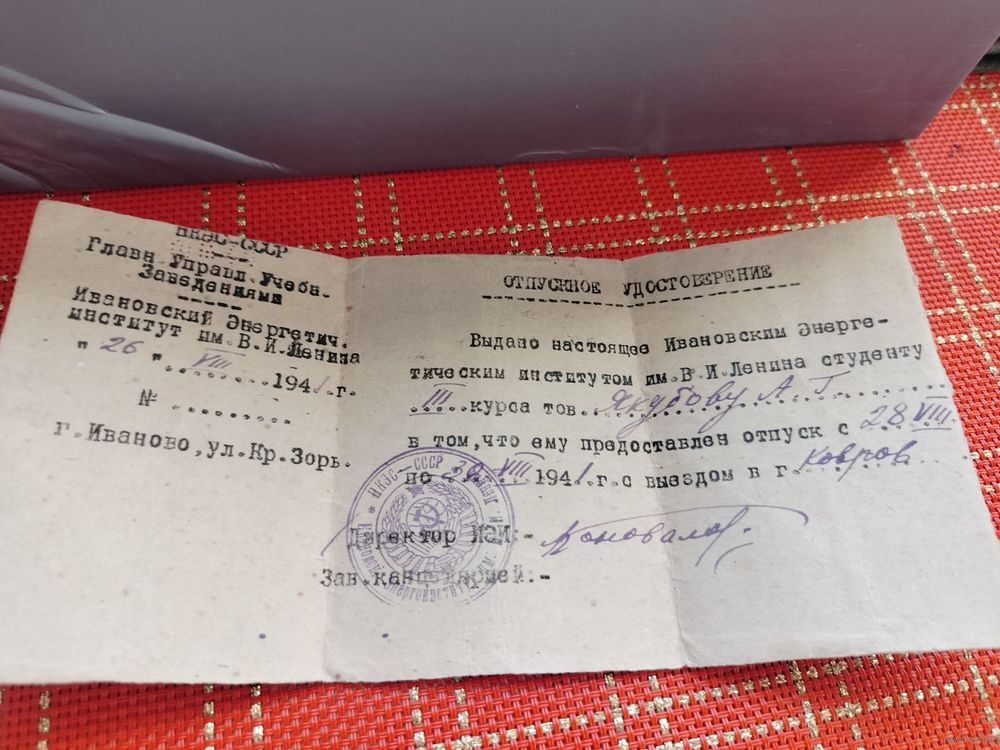 НКЭС-СССР
Главн Управл.Учебн.
Заведениями
Ивановский Энергетич.
институт им.В.И.Ленина
" 26 " VIII 1941.г.
№ .........
г.Иваново,ул.Кр.Зорь.
ОТПУСКНОЕ УДОСТОВЕРЕНИЕ
Выдано настоящее Ивановским Энерге-
тическим институтом им.В.И.Ленина студенту
III курса тов. Якубову А Г
в том,что ему предоставлен отпуск с 28 VIII
по VIII 1941.г.с выездом в г. Ковров
Директор ИЭИ:- Коновалов
Зав.канцелярией:-
НКЭС-СССР